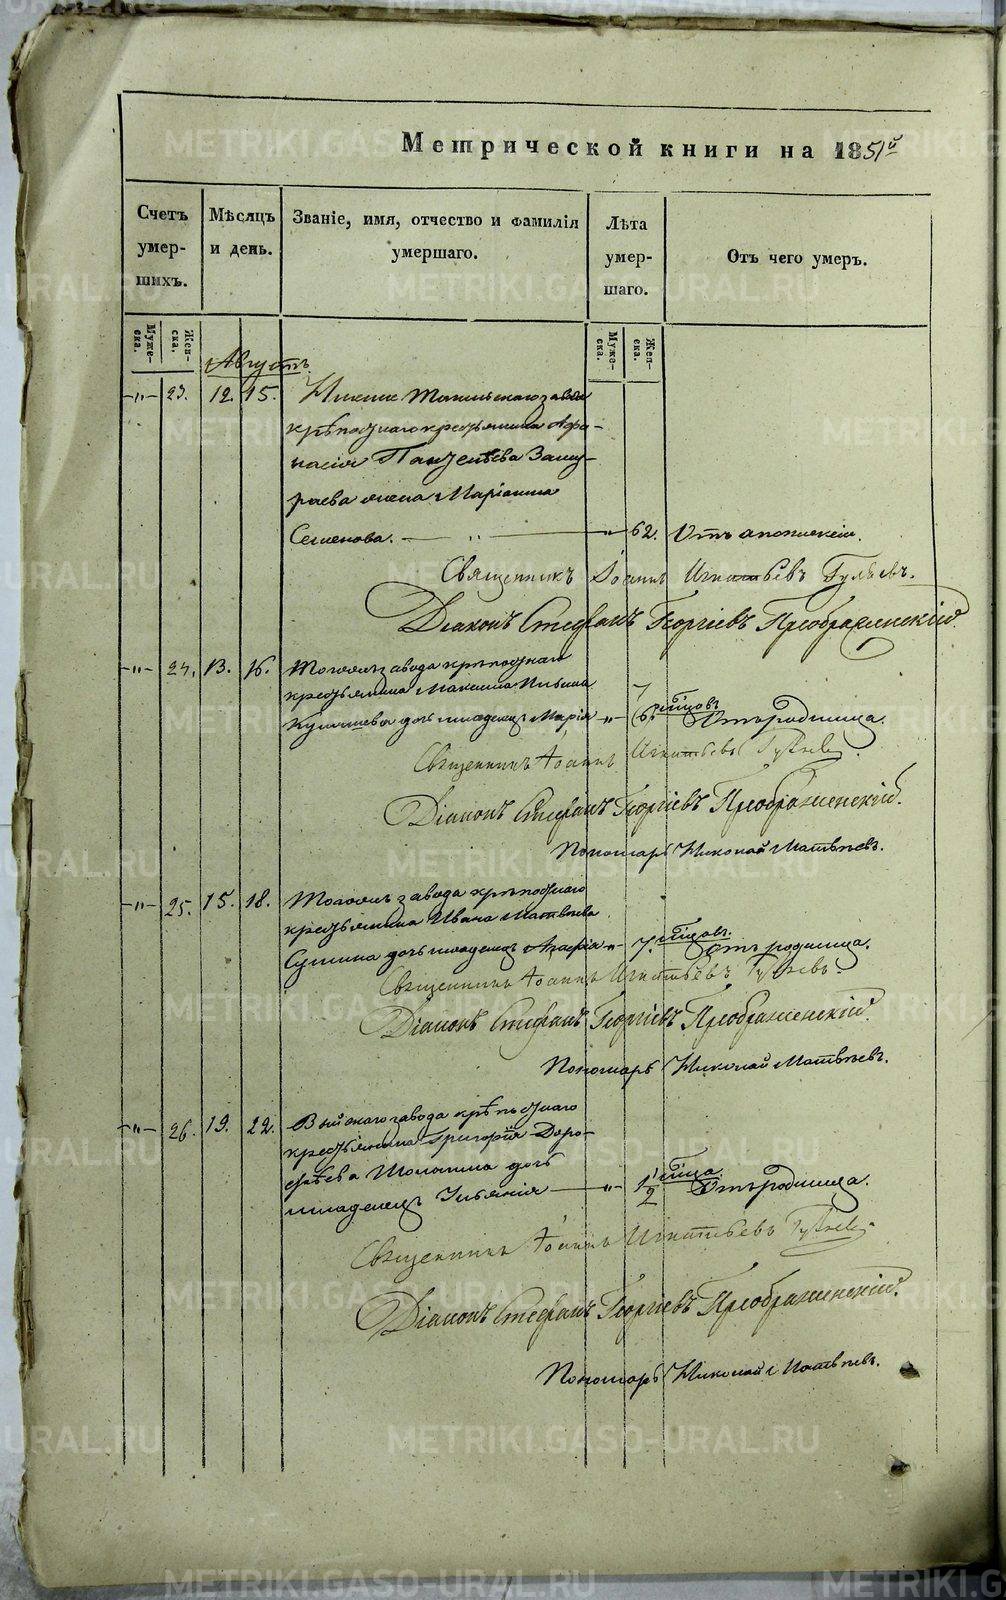 Метрической книги на 1851й
Счетъ умершихъ.
Мѣсяцъ и день.
Званіе, имя, отчество и фамилія умершаго.
Лѣта умершаго.
Отъ чего умеръ.
Мужеска.
Женска.
Мужеска.
Женска.
Августъ.
-„- 23. 12. 15. Нижне Тагильскаго завода
крѣпостнаго крестьянина Афа-
насія Пантелѣева
жена Маріанна
Семенова. — „ — „ 62. Отъ апоплексіи.
Священникъ Іоаннъ Игнатьевъ
Діаконъ Стефанъ Георгіевъ Преображенскій.
-„- 24. 13. 16. Тогожъ завода крѣпостнаго
крестьянина Максима Ильина
дочь младенец Марія „ мѣсяцовъ Отъ родимца.
Священникъ Іоаннъ Игнатьевъ
Діаконъ Стефанъ Георгіевъ Преображенскій.
Пономарь Николай Матвѣевъ.
-„- 25. 15. 18. Тогожъ завода крѣпостнаго
крестьянина Ивана Матвѣева
дочь младенец „ 7. мѣсяцовъ. Отъ родимца.
Священникъ Іоаннъ Игнатьевъ
Діаконъ Стефанъ Георгіевъ Преображенскій.
Пономарь Николай Матвѣевъ.
-„- 26. 19. 22. Выйскаго завода крѣпостнаго
крестьянина Григорія Доро-
фѣева дочь
младенецъ Ульянія — „ 1 1/2 мѣсяца Отъ родимца.
Священникъ Іоаннъ Игнатьевъ
Діаконъ Стефанъ Георгіевъ Преображенскій.
Пономарь Николай Матвѣевъ.
METRIKI.GASO-URAL.RU